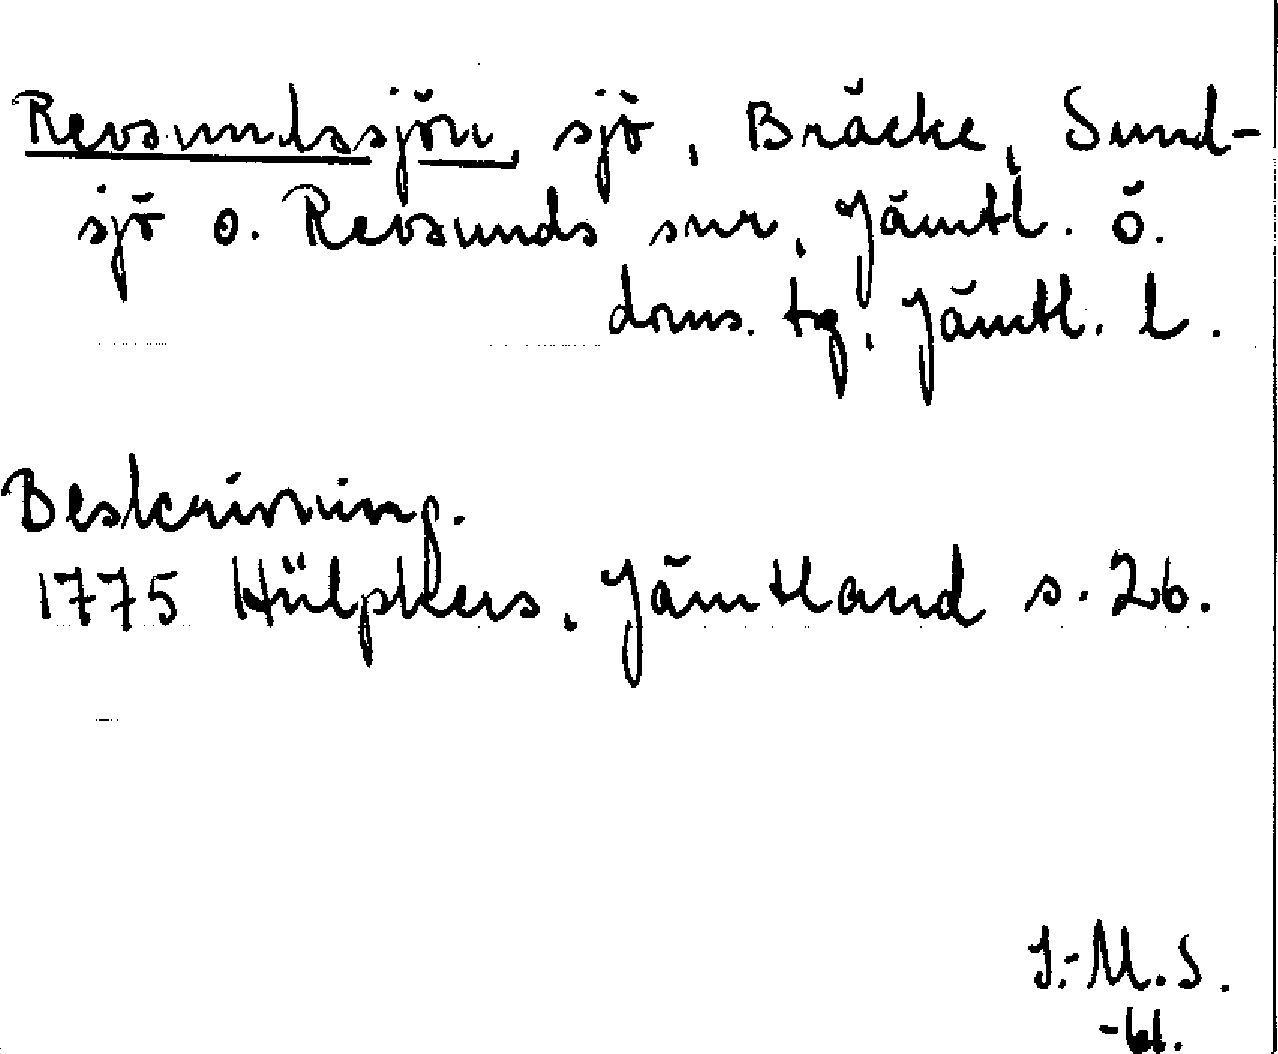 Revsundssjön, sjö, Bräcke, Sund-
sjö o. Revsunds snr, Jämtl. ö.
doms. tg, Jämtl. l.
Beskrivning.
1775 Hülphers, Jämtland s. 26.
I.-M.S.
-61.